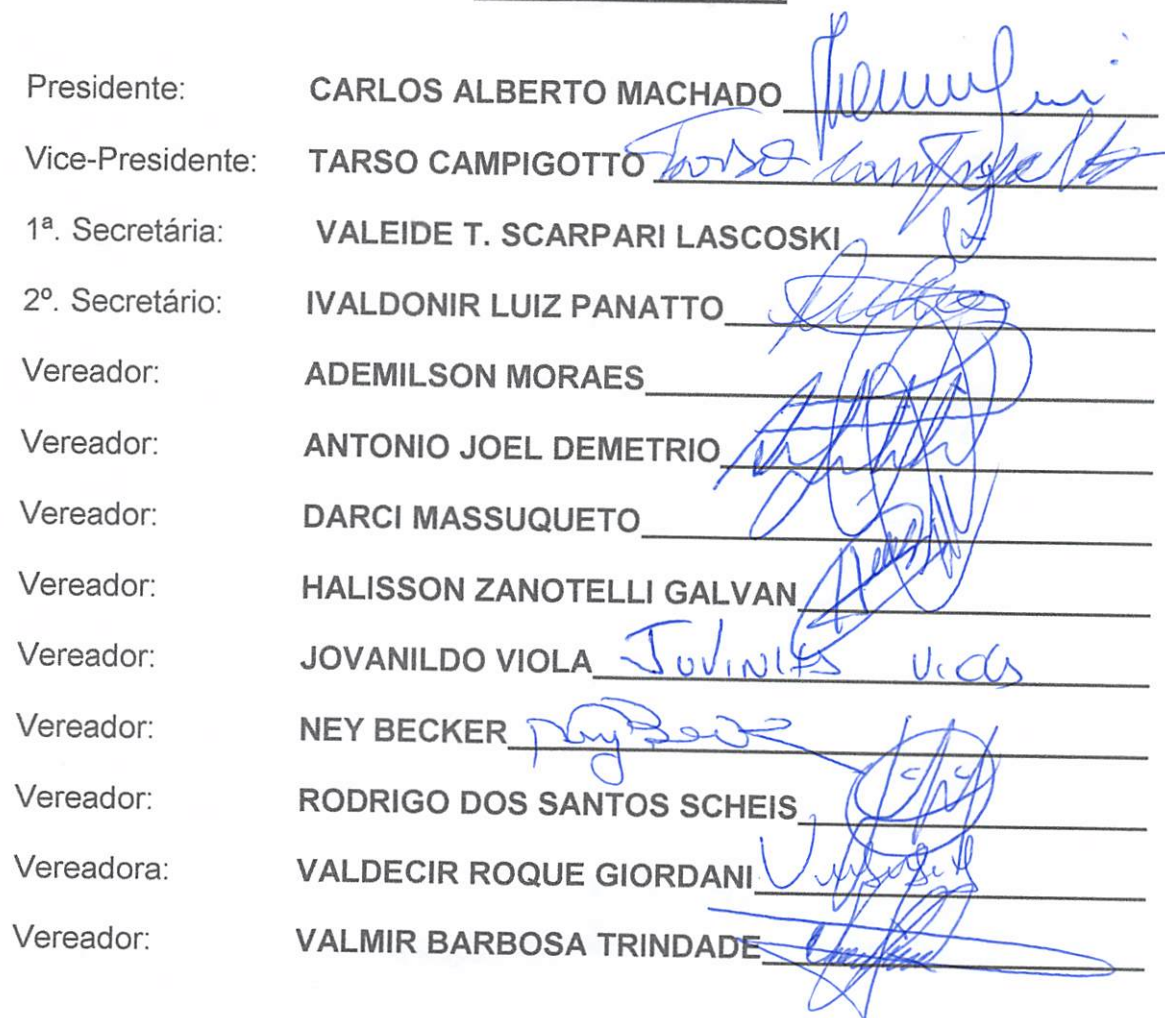 Presidente: CARLOS ALBERTO MACHADO
Vice-Presidente: TARSO CAMPIGOTTO Tarso Campigotto
1ª. Secretária: VALEIDE T. SCARPARI LASCOSKI
2º. Secretário: IVALDONIR LUIZ PANATTO
Vereador: ADEMILSON MORAES
Vereador: ANTONIO JOEL DEMETRIO
Vereador: DARCI MASSUQUETO
Vereador: HALISSON ZANOTELLI GALVAN
Vereador: JOVANILDO VIOLA
Vereador: NEY BECKER
Vereador: RODRIGO DOS SANTOS SCHEIS
Vereadora: VALDECIR ROQUE GIORDANI
Vereador: VALMIR BARBOSA TRINDADE